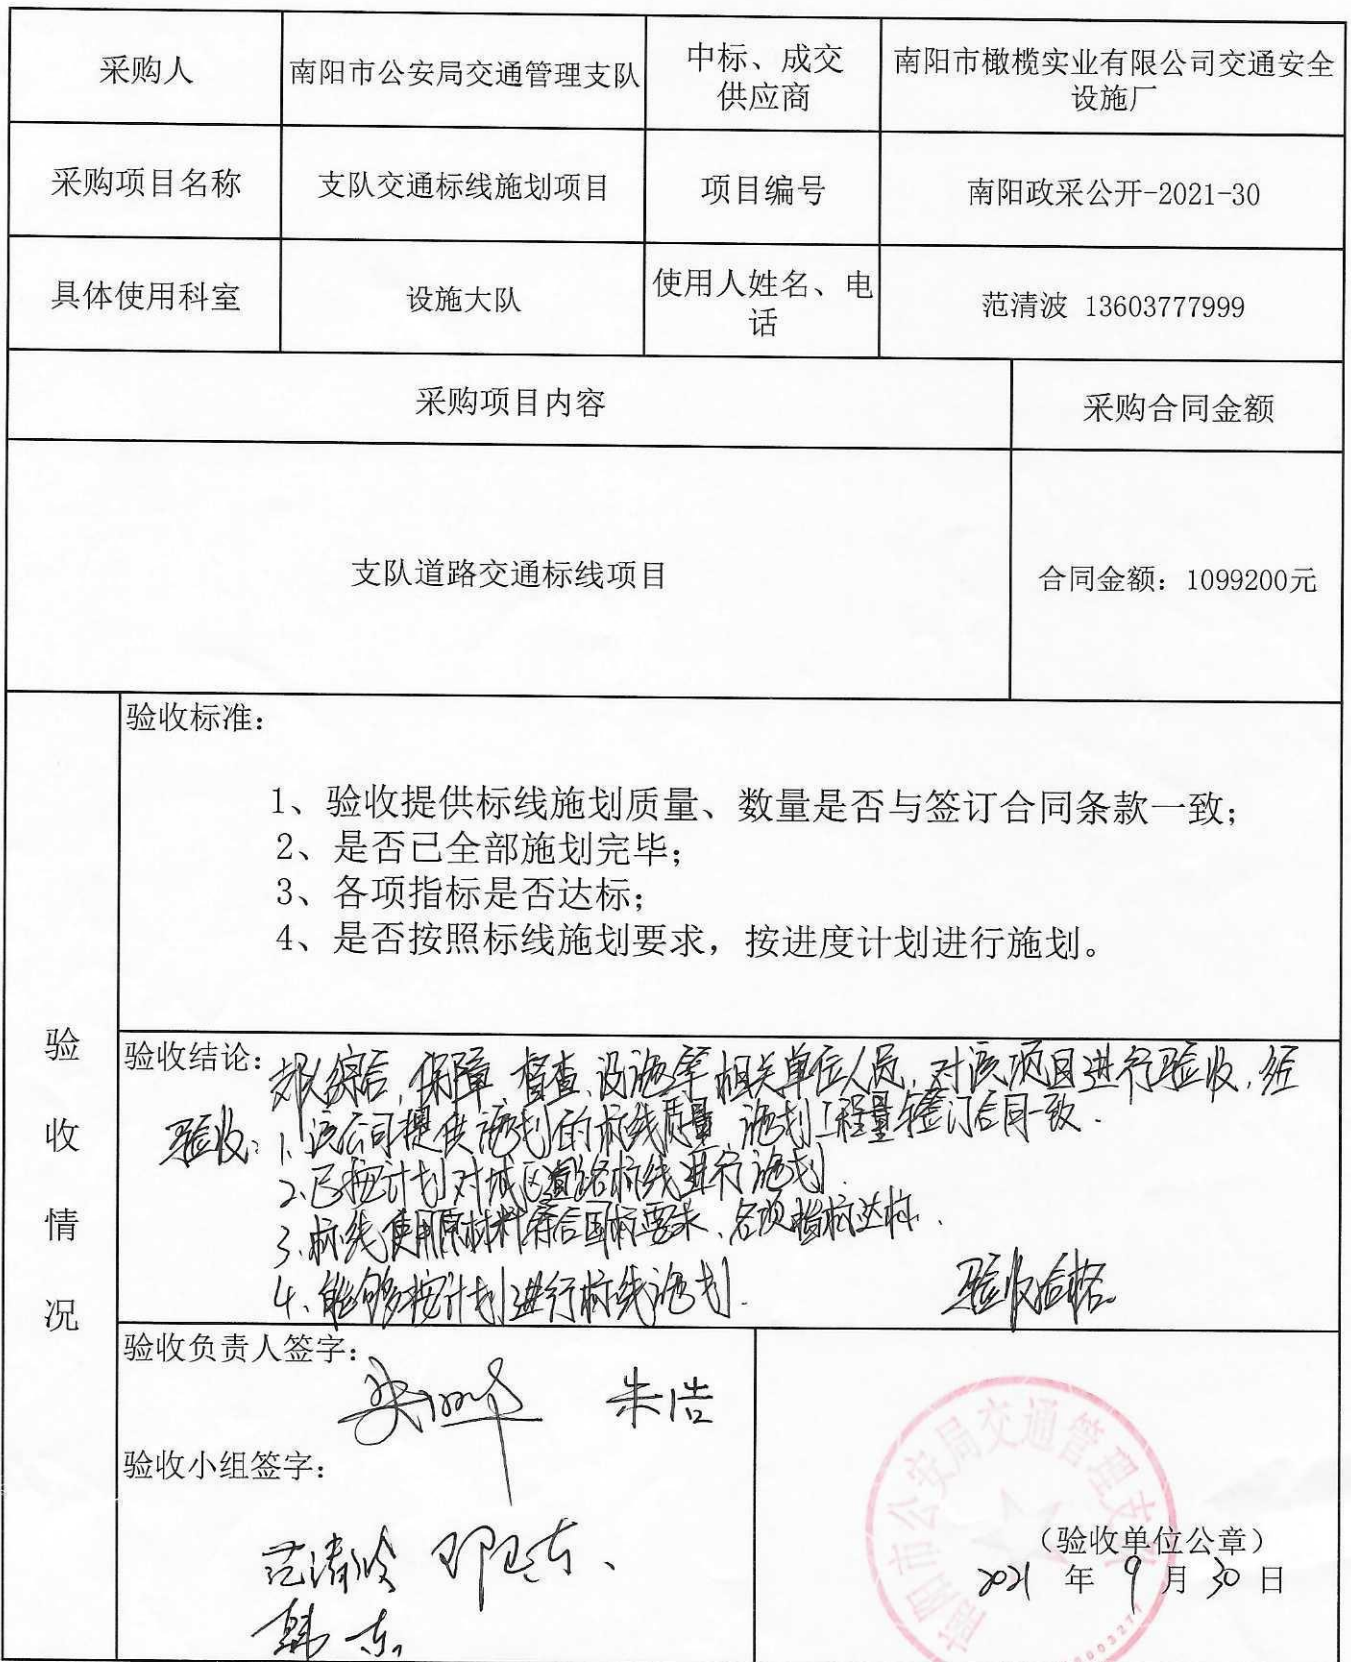 采购人
南阳市公安局交通管理支队
中标、成交
供应商
南阳市橄榄实业有限公司交通安全
设施厂
采购项目名称
支队交通标线施划项目
项目编号
南阳政采公开-2021-30
具体使用科室
设施大队
使用人姓名、电
话
范清波 13603777999
采购项目内容
采购合同金额
支队道路交通标线项目
合同金额：1099200元
验收情况
验收标准：
1、验收提供标线施划质量、数量是否与签订合同条款一致；
2、是否已全部施划完毕；
3、各项指标是否达标；
4、是否按照标线施划要求，按进度计划进行施划。
验收结论：
综合，保障，督查，设施等相关单位人员，对该项目进行验收，经
验收：1、该公司提供施划的标线质量，施划工程量与签订合同一致．
2、已按计划对城区道路标线进行施划．
3、标线使用原材料符合国标要求、各项指标达标．
4、能够按计划进行标线施划．
验收合格。
验收负责人签字：
朱浩
验收小组签字：
范清波
韩东
南阳市公安局交通管理支队
（验收单位公章）
2021 年 9 月 30 日